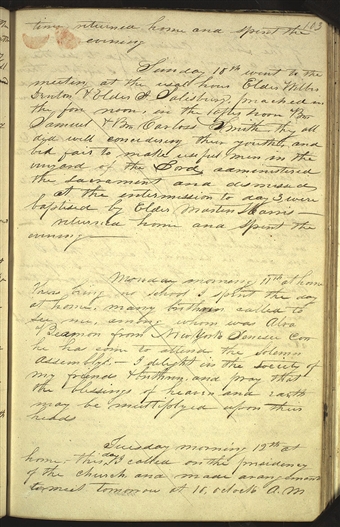 103
time returned home and spent the
evening
Sunday 10th went to the
meeting at the usual hour Elder Wilber
Denton & Elder J Salisbury preached in
the fore noon, in the after noon Br
Samuel & Br. Carloss Smith, they all
did well concidering their youth, and
bid fair to make useful men in the
vinyard of the Lord, administered
the sacrament and dismissed
at the intermission to day 3 were
baptised by Elder Martin Harris
returned home and spent the
evening
Monday morning 11th at home
There being no school I spent the day
at home, many brethren called to
see me, among whom was Alva
Beamon from New York Jenesee Co
he has come to attend the Solemn
Assembly— I delight in the society of
my friends & brethren, and pray that
the blessings of heaven and earth
may be multiplyed upon their
heads
Tuesday morning 12th at
home. this day I called on the presidency
of the church and made arangements
to meet tomorrow at 10, oclock A.M